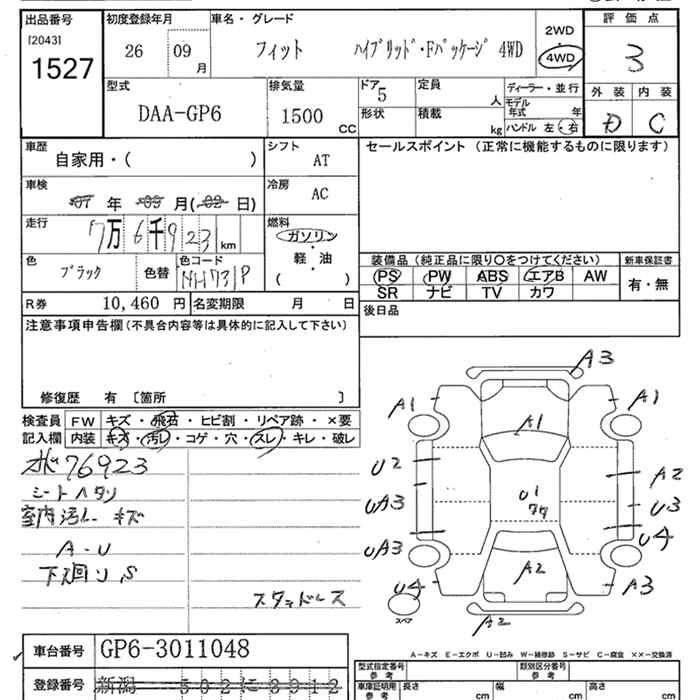 出品番号 初度登録年月 車名・グレード 2WD 評価点
[2043] 1527 26 09 月 フィット ハイブリッド・Fパッケージ 4WD 4WD 3
型式 排気量 ドア 定員 ディーラー・並行 外装 内装
DAA-GP6 1500 CC 5 人 モデル年式 年 D C
形状 積載 kg ハンドル 左・右
車歴 シフト セールスポイント (正常に機能するものに限ります)
自家用・( ) AT
車検 07 年 09 月(02 日) 冷房 AC
走行 7万6千923km 燃料 ガソリン
軽・油
( )
色 色替 色コード 装備品 (純正品に限り○をつけてください) 新車保証書
ブラック NH731P PS PW ABS エアB AW 有・無
SR ナビ TV カワ
R券 10,460 円 名変期限 月 日 後日品
注意事項申告欄(不具合内容等は具体的に記入して下さい)
修復歴 有 〔箇所 〕
検査員 FW キズ・飛石・ヒビ割・リペア跡・×要
記入欄 内装 キズ・汚レ・コゲ・穴・スレ・キレ・破レ
76923
シートヘタリ
室内汚レ キズ
A-U
下廻リS
スタッドレス
A3
A1 A1 A1
U2 A2
UA3 U1 U3
UA3 U4
U4 A2 A3
スペア A2
車台番号 GP6-3011048
登録番号 新潟 502 に 3912
A-キズ E-エクボ U-凹み W-補修跡 S-サビ C-腐食 ××-交換済
型式指定番号 参考 類別区分番号 参考
車庫証明用 参考 長さ cm 幅 cm 高さ cm